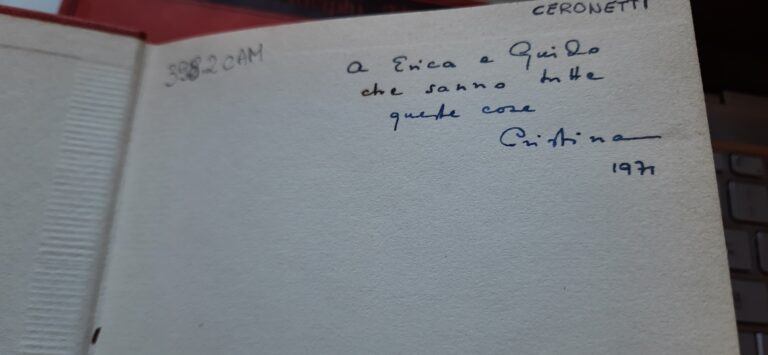 CERONETTI
398.2 CAM
a Erica e Guido
che sanno tutte
queste cose
Cristina
1971